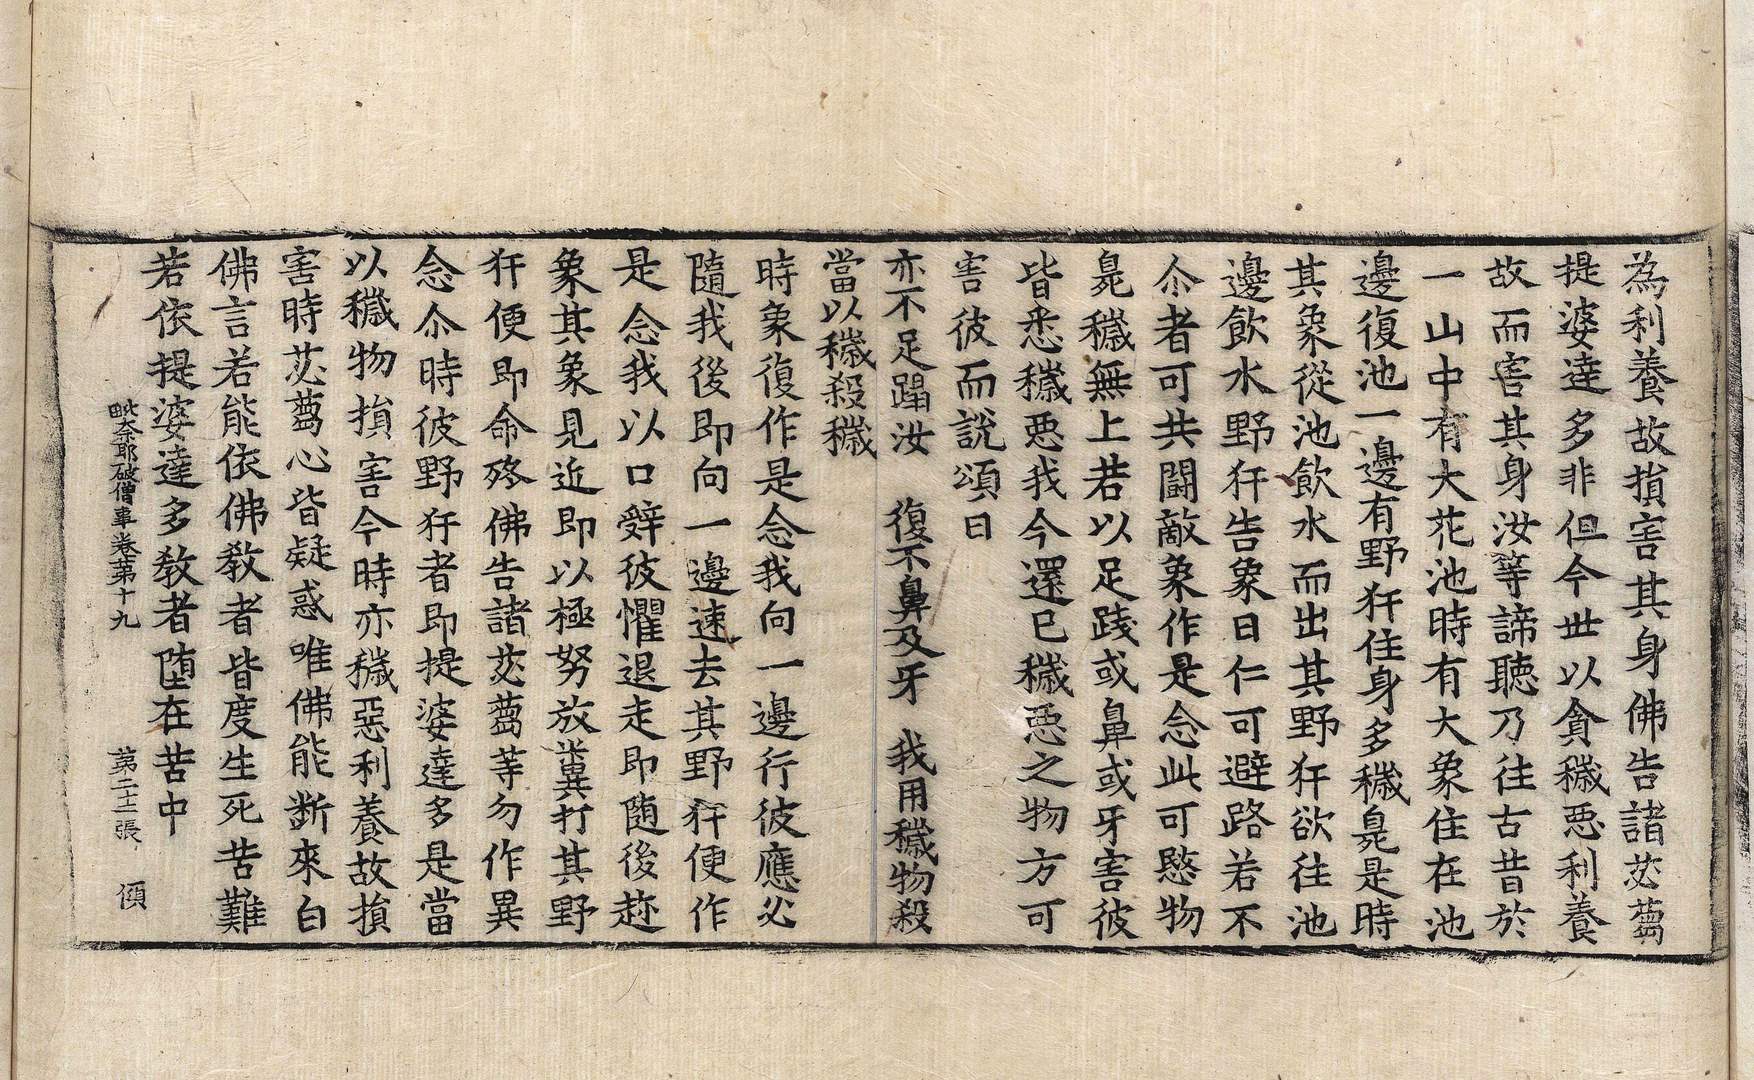 為利養故損害其身佛告諸苾蒭
提婆達多非但今世以貪穢惡利養
故而害其身汝等諦聽乃往古昔於
一山中有大花池時有大象住在池
邊復池一邊有野犴住身多穢臰是時
其象從池飲水而出其野犴欲往池
邊飲水野犴告象曰仁可避路若不
尒者可共鬪敵象作是念此可愍物
臰穢無上若以足踐或鼻或牙害彼
皆悉穢惡我今還已穢惡之物方可
害彼而說頌曰
亦不足蹋汝　復不鼻及牙　我用穢物殺
當以穢殺穢
時象復作是念我向一邊行彼應必
隨我後即向一邊速去其野犴便作
是念我以口辤彼懼退走即随後趂
象其象見近即以極努放糞打其野
犴便即命終佛告諸苾蒭等勿作異
念尒時彼野犴者即提婆達多是當
以穢物損害今時亦穢惡利養故損
害時苾蒭心皆疑惑唯佛能斷來白
佛言若能依佛教者皆度生死苦難
若依提婆達多教者堕在苦中
毗奈耶破僧事卷第十九　第二十二張　傾